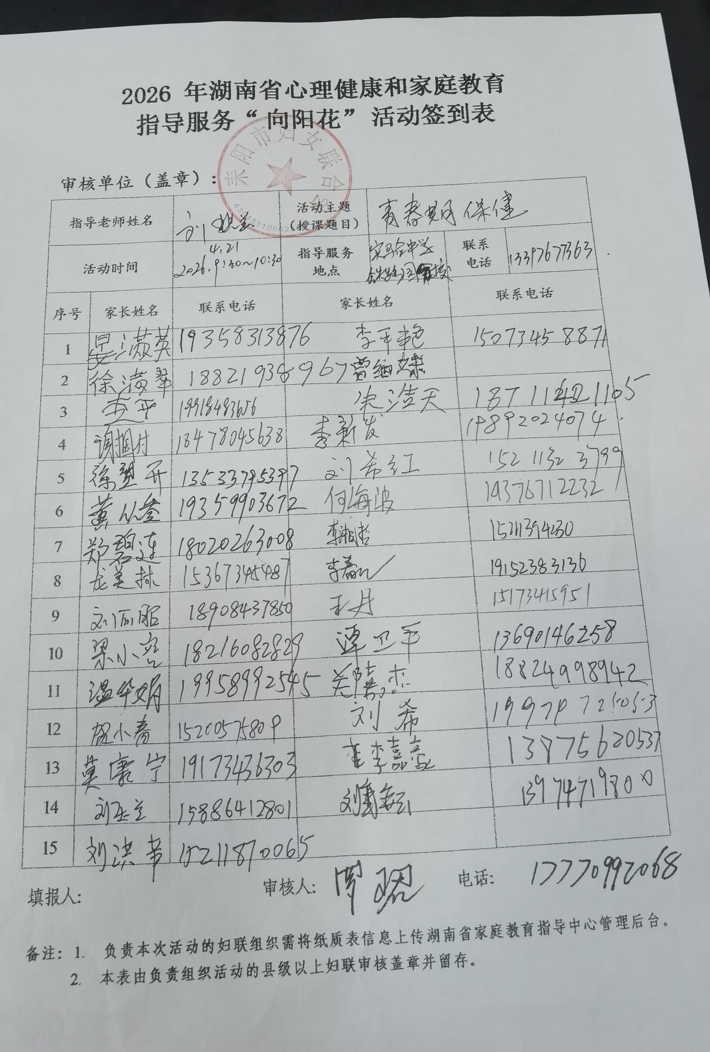 2026 年湖南省心理健康和家庭教育
指导服务“向阳花”活动签到表
耒阳市妇女联合会
审核单位（盖章）：
指导老师姓名 刘 活动主题（授课题目） 青春期保健
活动时间 2026.4.21 9:30~10:30 指导服务地点 实验中学 联系电话 13397677363
序号 家长姓名 联系电话 家长姓名 联系电话
1 晏满英 19358313876 李平艳 15073458871
2 徐满翠 18821938967
3 李平 朱浩天
4 18478045638 李新发 19892024074
5 13533795397 刘希红 152 1132 3799
6 19359903672 何海波 19376712232
7 郑碧莲 18020263008 15211394230
8 龙美林 15367345487 李春 19152383136
9 刘 18908437850 王丹 15173415951
10 梁小 18216082829 谭卫平 13690146258
11 温华娟 19958992545 18824998942
12 贺小春 15200575809 刘希
13 莫康宁 19173436303 李嘉豪 13875620537
14 刘 15886412801 13974719800
15 刘洪 15211870065
填报人： 审核人： 罗 电话： 17770992068
备注：1. 负责本次活动的妇联组织需将纸质表信息上传湖南省家庭教育指导中心管理后台。
2. 本表由负责组织活动的县级以上妇联审核盖章并留存。